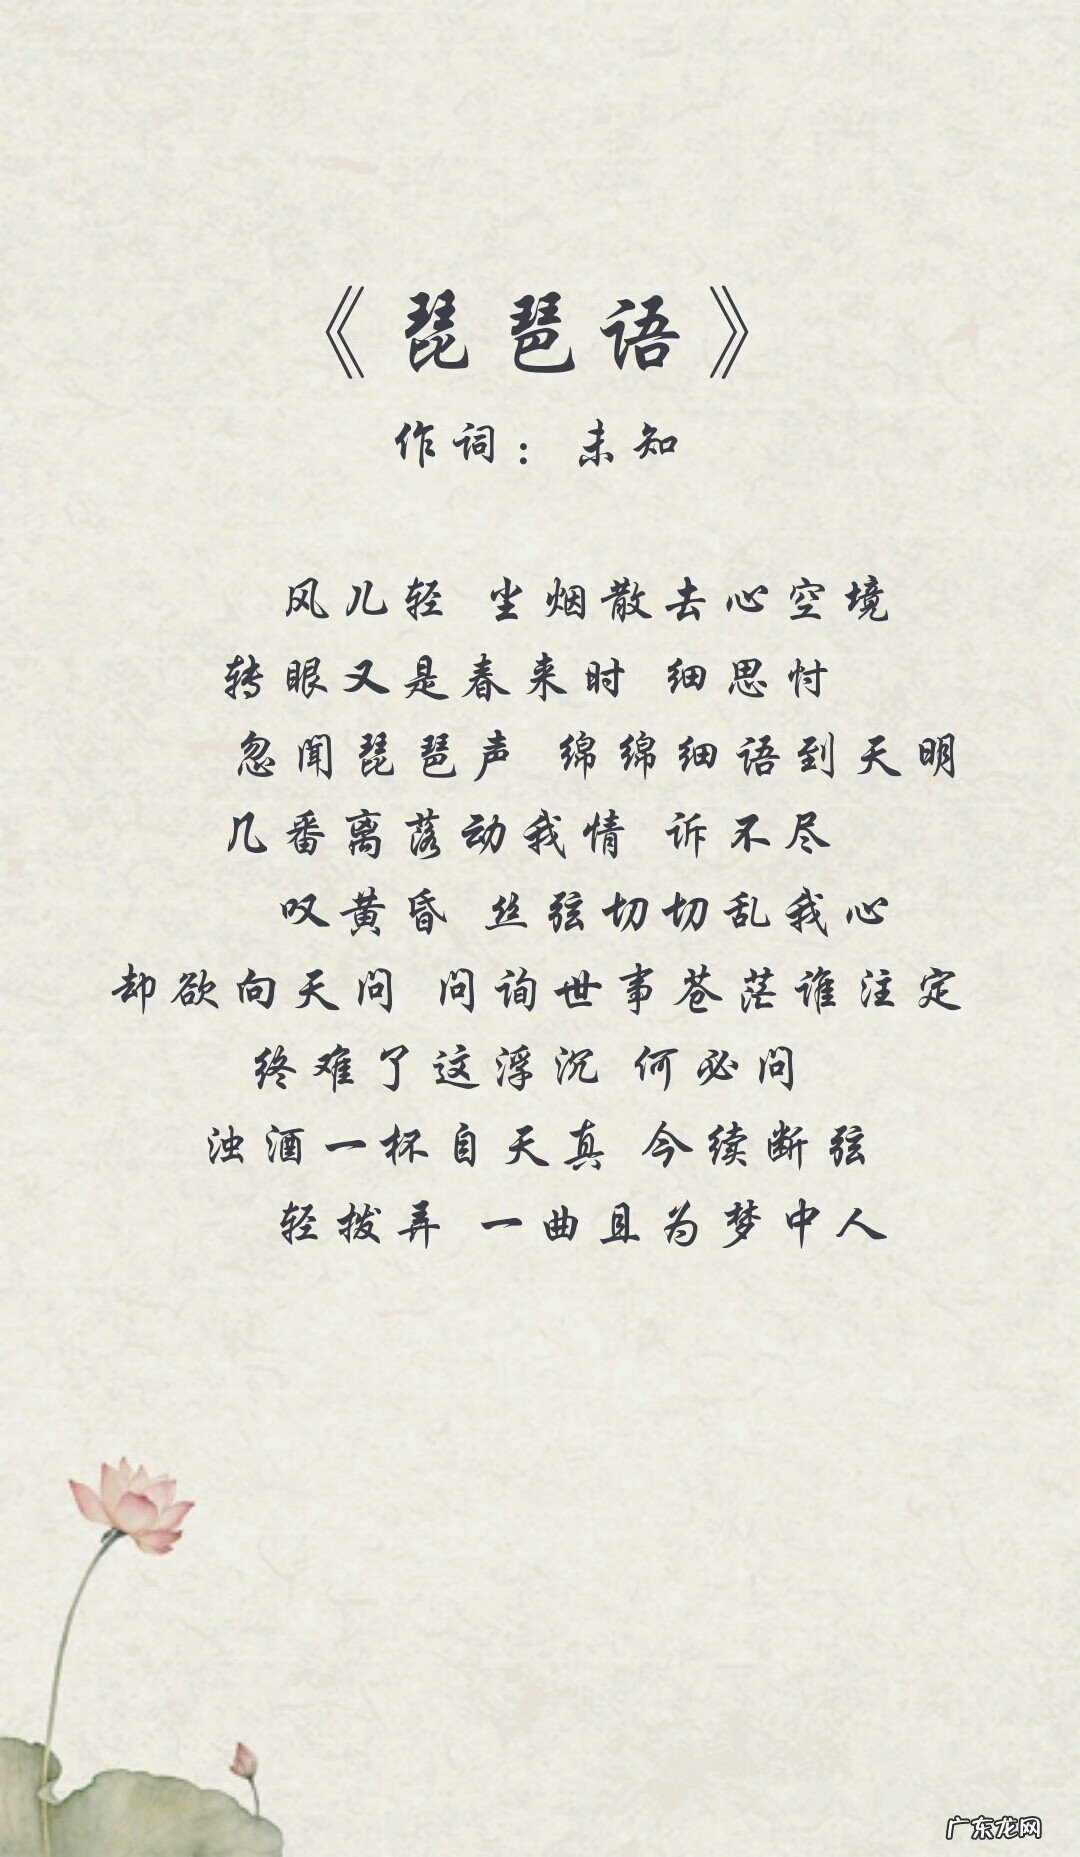 《琵琶语》
作词：未知
风儿轻 尘烟散去心空境
转眼又是春来时 细思忖
忽闻琵琶声 绵绵细语到天明
几番离落动我情 诉不尽
叹黄昏 丝弦切切乱我心
却欲向天问 问询世事苍茫谁注定
终难了这浮沉 何必问
浊酒一杯自天真 今续断弦
轻拨弄 一曲且为梦中人
广东龙网